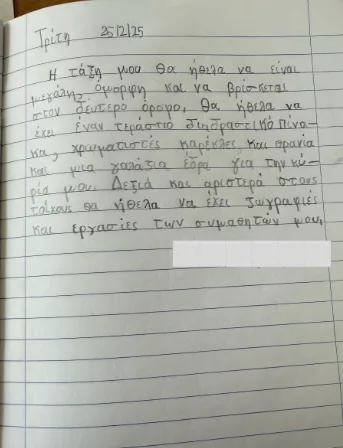 Τρίτη 25/2/25
Η τάξη μου θα ήθελα να είναι
μεγάλη, όμορφη και να βρίσκεται
στον δεύτερο όροφο. Θα ήθελα να
έχει έναν τεράστιο διαδραστικό πίνα-
κα, χρωματιστές καρέκλες και θρανία
και μια γαλάζια έδρα για την κυ-
ρία μου. Δεξιά και αριστερά στους
τοίχους θα ήθελα να έχει ζωγραφιές
και εργασίες των συμαθητών μου.